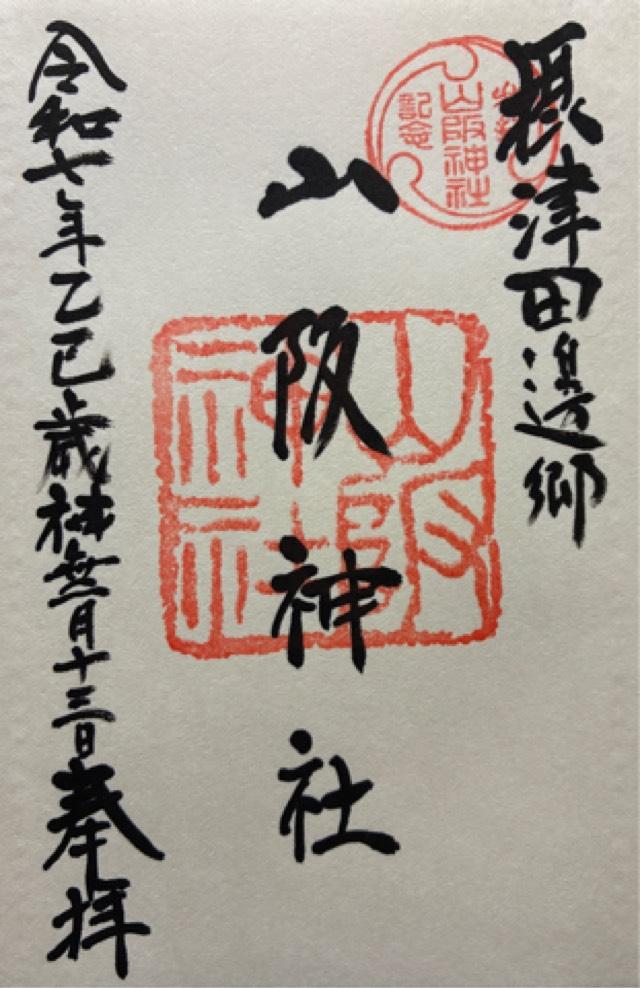 摂津田邊郷
山阪神社
令和七年乙巳歳神無月十三日奉拝
山阪神社
記念
山阪神社